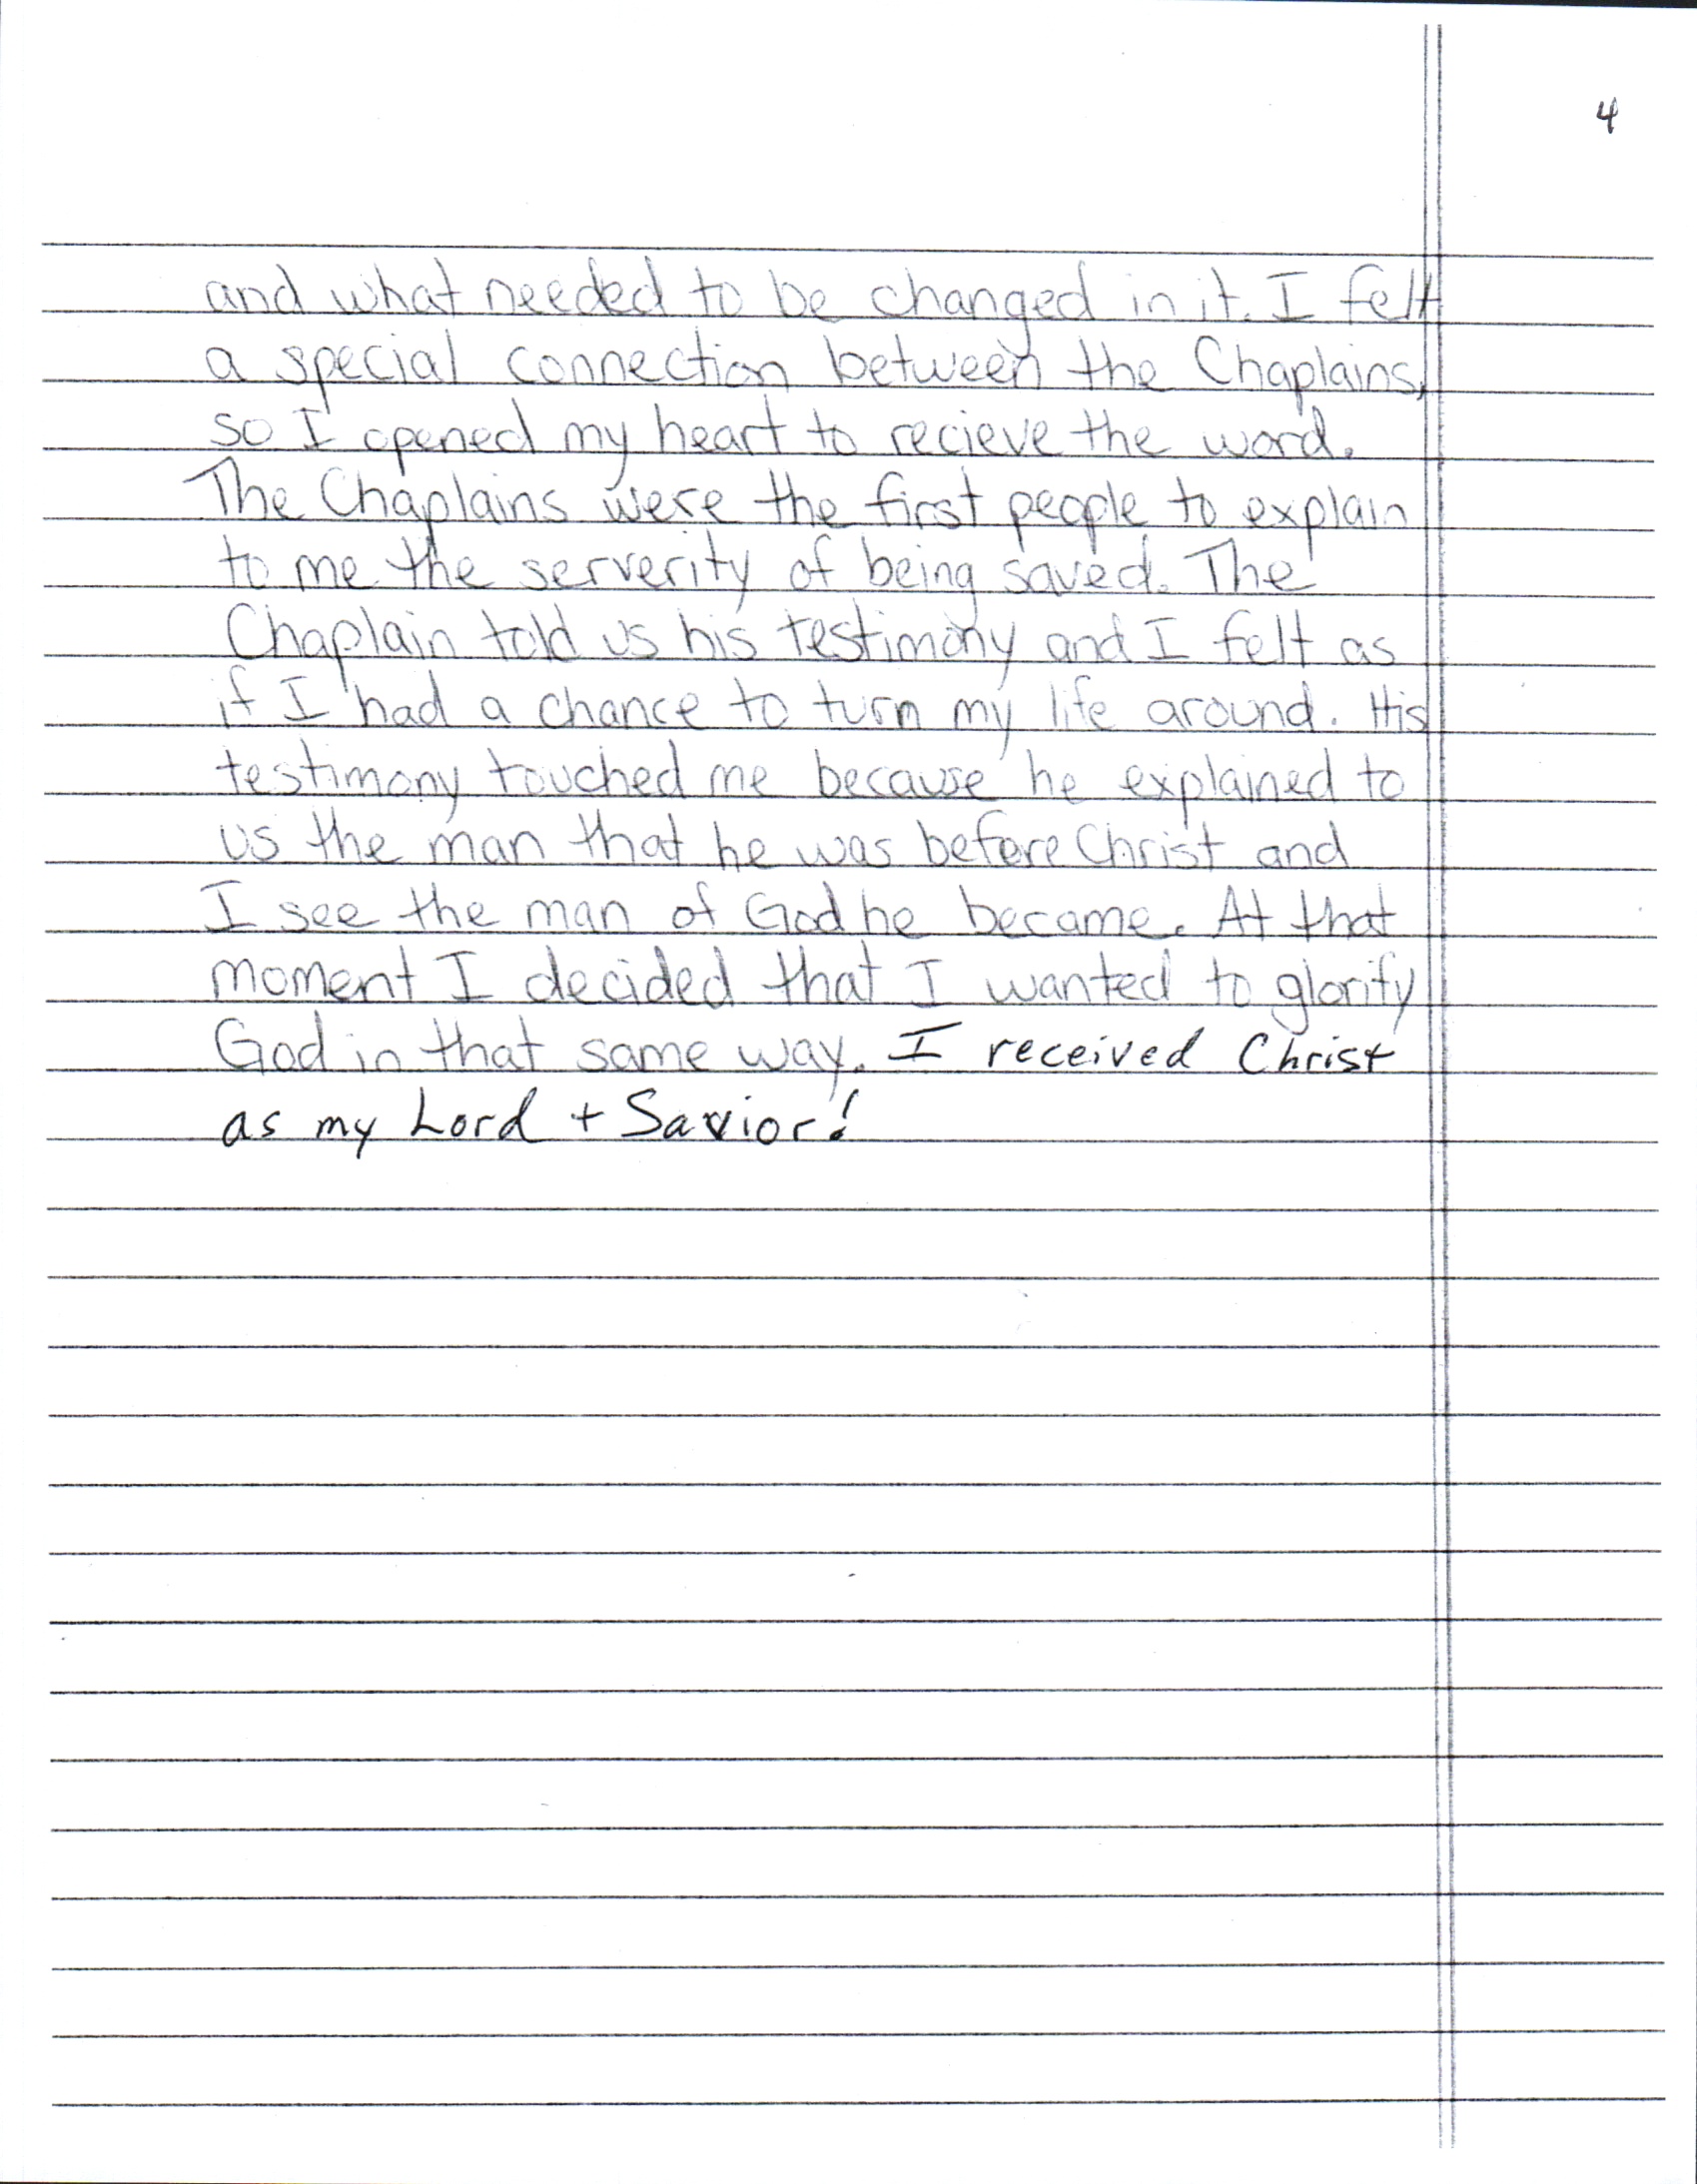 4
and what needed to be changed in it. I felt
a special connection between the Chaplains,
so I opened my heart to recieve the word.
The Chaplains were the first people to explain
to me the serverity of being saved. The
Chaplain told us his testimony and I felt as
if I had a chance to turn my life around. His
testimony touched me because he explained to
us the man that he was before Christ and
I see the man of God he became. At that
moment I decided that I wanted to glorify
God in that same way. I received Christ
as my Lord + Savior!